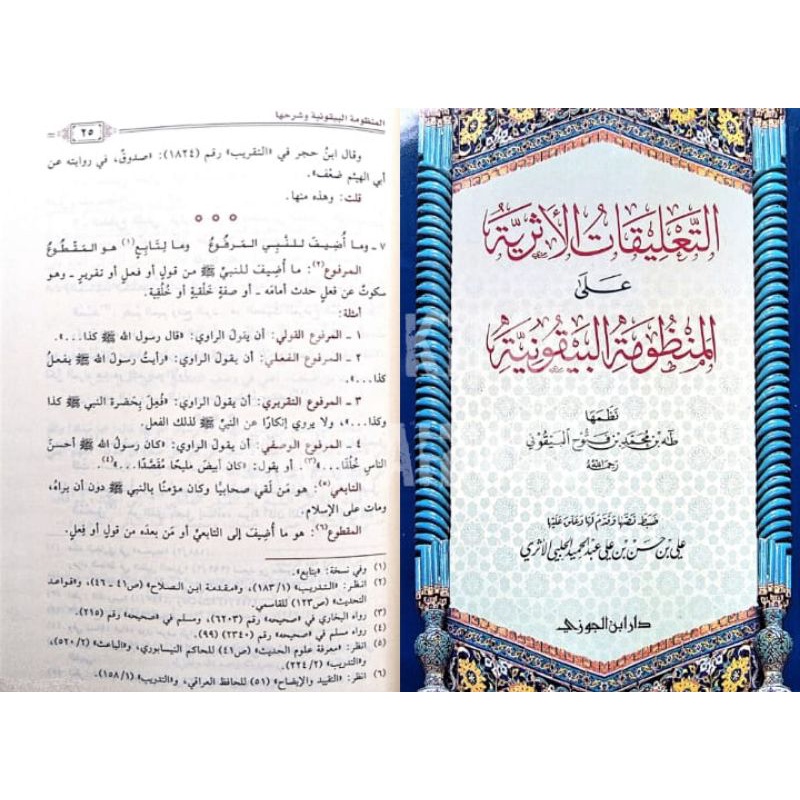 المنظومة البيقونية وشرحها
٢٥
وقال ابن حجر في «التقريب» رقم (١٨٢٤): «صدوق، في روايته عن
أبي الهيثم ضعف».
قلت: وهذه منها.
٧ ـ وما أُضيفَ للنَّبي المَرفوعُ وما لِتابَعٍ(١) هو المَقْطوعُ
المرفوع(٢): ما أُضيف للنبيِّ ﷺ من قولٍ أو فعلٍ أو تقريرٍ ـ وهو
سكوتٌ عن فعلٍ حدث أمامَه ـ أو صفةٍ خَلْقيَّةٍ أو خُلُقيَّةٍ:
أمثلة:
١ ـ المرفوع القولي: أن يقولَ الراوي: «قال رسول الله ﷺ كذا...».
٢ ـ المرفوع الفعلي: أن يقولَ الراوي: «رأيتُ رسول الله ﷺ يفعلُ
كذا...».
٣ ـ المرفوع التقريري: أن يقولَ الراوي: «فُعِلَ بِحَضرة النبي ﷺ كذا
وكذا...»، ولا يروي إنكارًا عن النبيِّ ﷺ لذلك الفعل.
٤ ـ المرفوع الوصفي: أن يقولَ الراوي: «كان رسولُ الله ﷺ أحسنَ
الناسِ خُلُقًا...»(٣). أو يقول: «كان أبيضَ مليحًا مُقَصَّدًا...»(٤).
التابعي(٥): هو مَن لَقي صحابيًّا وكان مؤمنًا بالنبي ﷺ دون أن يراهُ،
ومات على الإسلام.
المقطوع(٦): هو ما أُضيف إلى التابعيِّ أو مَن بعده من قولٍ أو فِعلٍ.
(١) وفي نسخة: «بتابع».
(٢) انظر: «التدريب» (١/ ١٨٣)، و«مقدمة ابن الصلاح» (ص٤١ ـ ٤٦)، و«قواعد
التحديث» (ص١٢٣) للقاسمي.
(٣) رواه البخاري في «صحيحه» رقم (٦٢٠٣)، ومسلم في «صحيحه» رقم (٢١٥).
(٤) رواه مسلم في «صحيحه» رقم (٢٣٤٠) (٩٩).
(٥) انظر: «معرفة علوم الحديث» (ص٤١) للحاكم النيسابوري، و«الباعث» (٢/ ٥٢٠)،
و«التدريب» (٢/ ٢٢٤).
(٦) انظر: «التقييد والإيضاح» (٥١) للحافظ العراقي، و«التدريب» (١/ ١٥٨).
التعليقات الأثرية
على
المنظومة البيقونية
نظمها
طه بن محمد بن فتوح البيقوني
رحمه الله
ضبط نصها وقدم لها وعلق عليها
علي بن حسن بن علي عبد الحميد الحلبي الأثري
دار ابن الجوزي